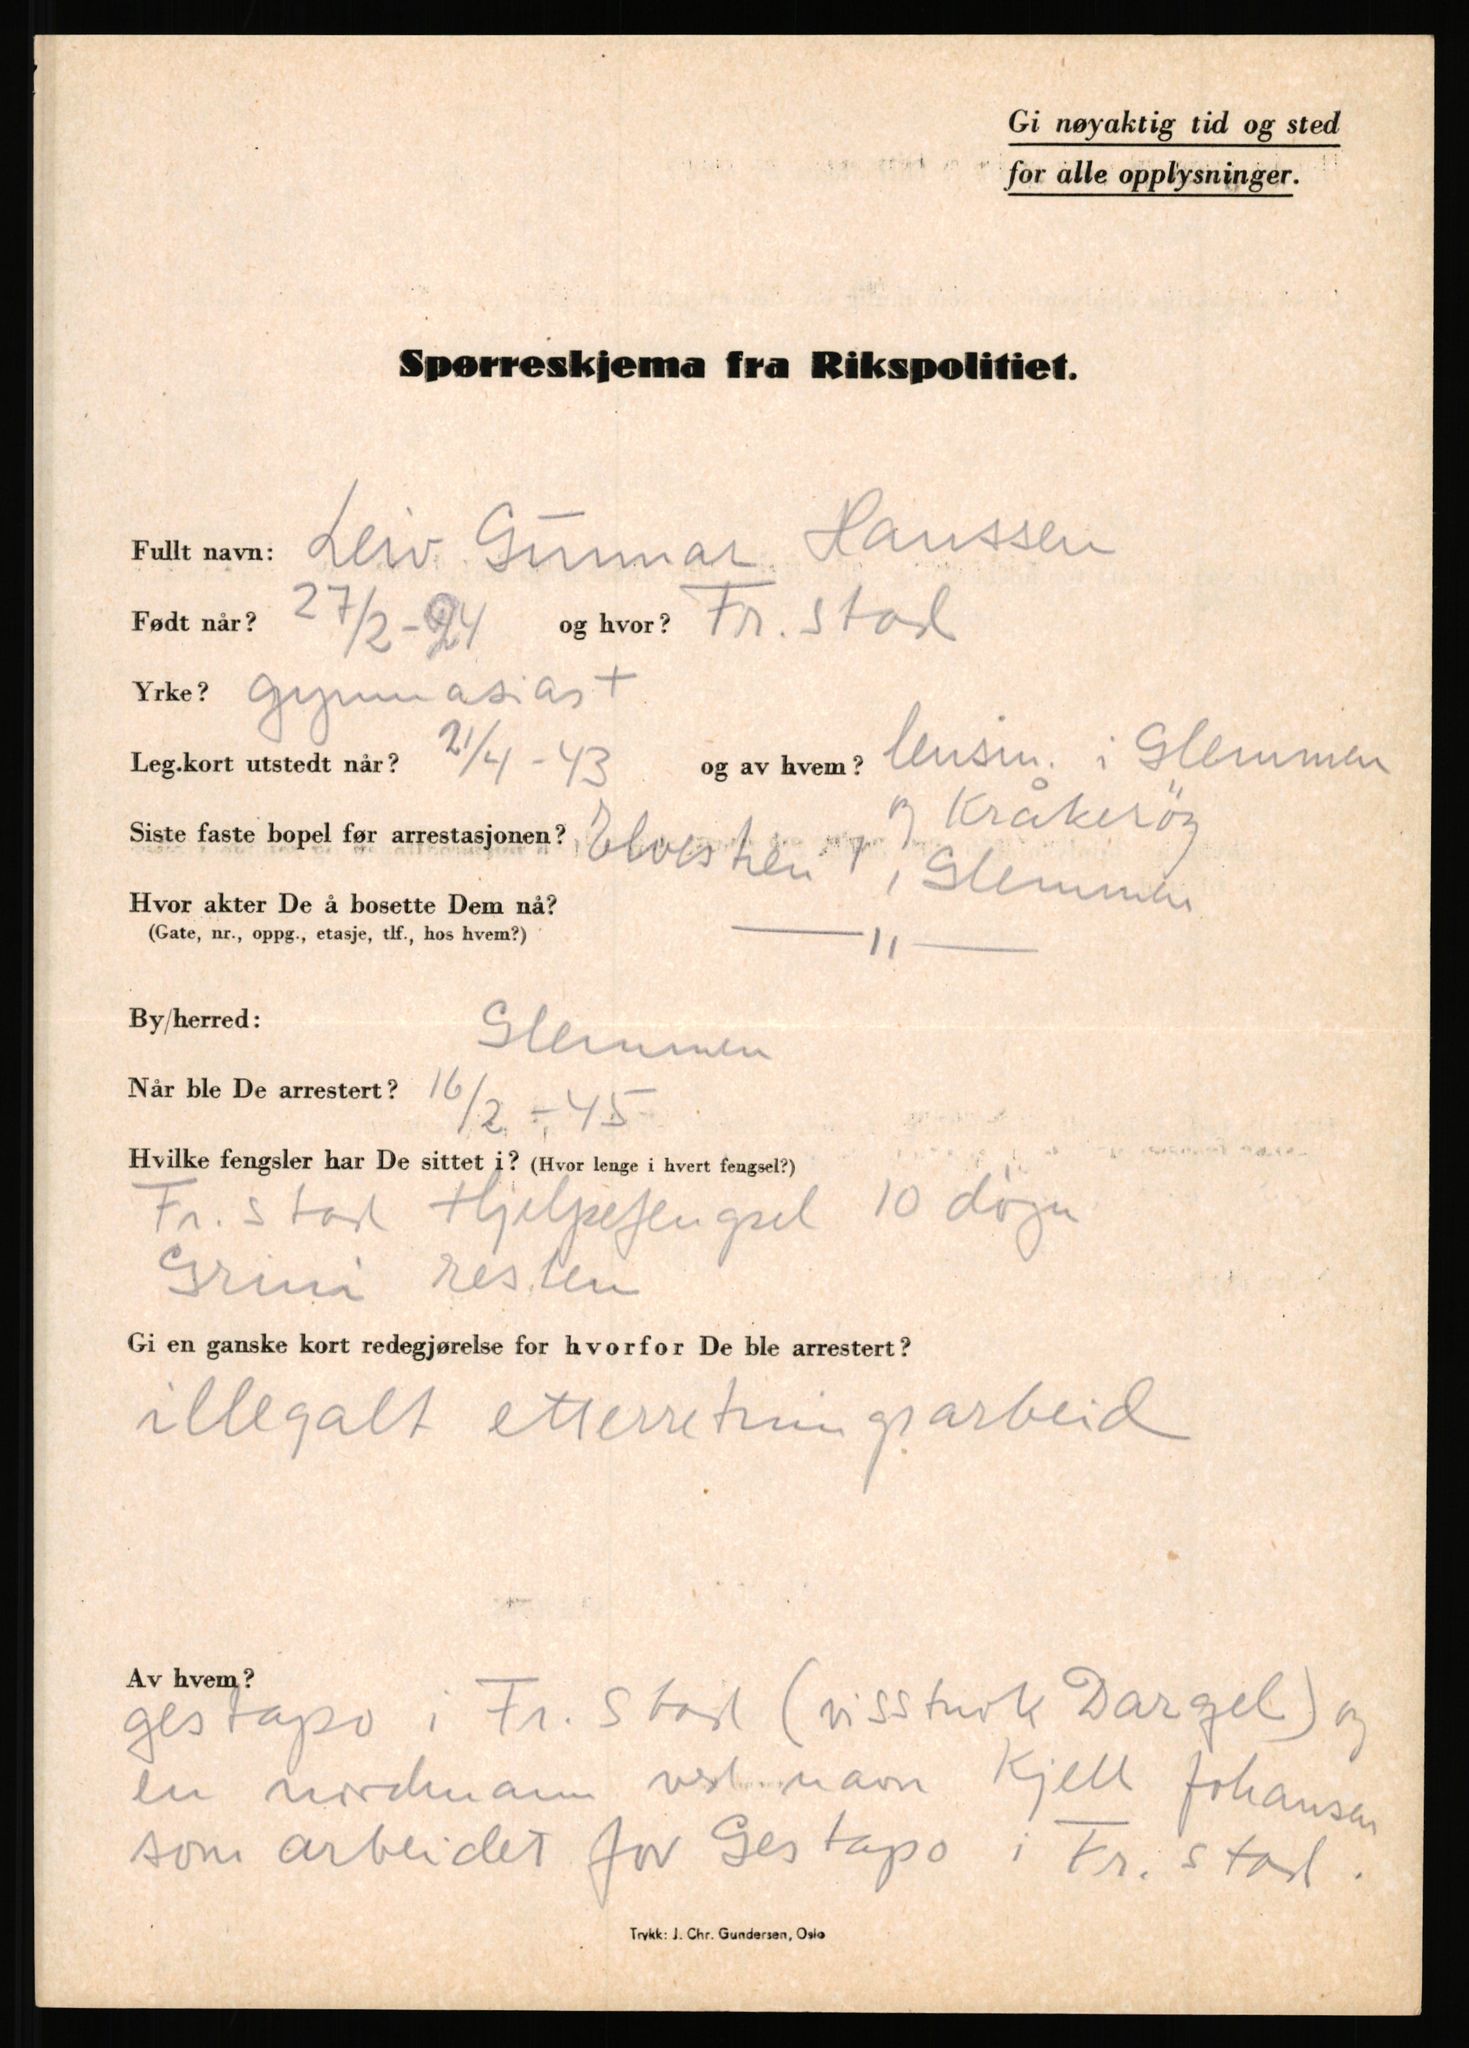 Gi nøyaktig tid og sted
for alle opplysninger.
Spørreskjema fra Rikspolitiet.
Fullt navn: Leiv Gunnar Hanssen
Født når? 27/2-24 og hvor? Fr.stad
Yrke? gymnasiast
Leg.kort utstedt når? 21/4-43 og av hvem? lensm. i Glemmen
og Kråkerøy
Siste faste bopel før arrestasjonen? Glemmen
Hvor akter De å bosette Dem nå?
(Gate, nr., oppg., etasje, tlf., hos hvem?) —— 11 ——
By/herred: Glemmen
Når ble De arrestert? 16/2-45
Hvilke fengsler har De sittet i? (Hvor lenge i hvert fengsel?)
Fr.stad Hjelpefengsel 10 døgn
Grini resten
Gi en ganske kort redegjørelse for hvorfor De ble arrestert?
illegalt etterretningsarbeid
Av hvem?
gestapo i Fr.stad (visstnok Dargel) og
en nordmann ved navn Kjell Johansen
som arbeidet for Gestapo i Fr.stad.
Trykk: J. Chr. Gundersen, Oslo